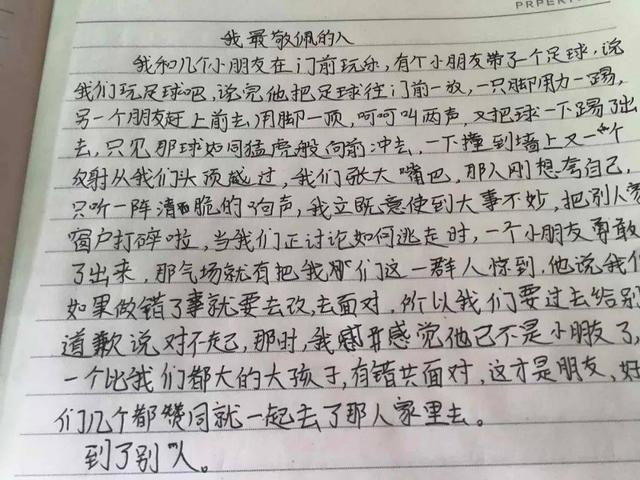 PRPERT
我最敬佩的人
我和几个小朋友在门前玩乐,有个小朋友带了一个足球,说
我们玩足球吧,说完他把足球往门前一放,一只脚用力一踢,
另一个朋友赶上前去,用脚一顶,呵呵叫两声,又把球一下踢了出
去,只见那球如同猛虎般向前冲去,一下撞到墙上又一个
反射从我们头顶越过,我们张大嘴巴,那人刚想夸自己,
只听一阵清脆的响声,我立既意使到大事不妙,把别人家
窗户打碎啦,当我们正讨论如何逃走时,一个小朋友勇敢
了出来,那气场就有把我们这一群人惊到,他说我们
如果做错了事就要去改,去面对,所以我们要过去给别
道歉说对不起,那时,我感觉他已不是小朋友了,
一个比我们都大的大孩子,有错共面对,这才是朋友,好
们几个都赞同就一起去了那人家里去。
到了别人。